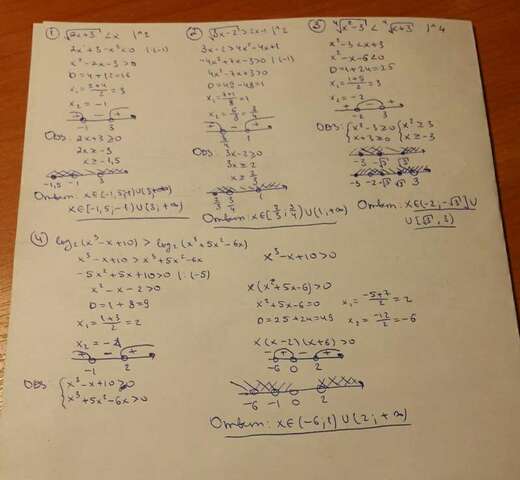 ① √2x+3 < x |^2
2x+3-x²<0 |(-1)
x²-2x-3>0
D=4+12=16
x₁=(2+4)/2=3
x₂=-1
+ - +
-1 3
ОДЗ: 2x+3≥0
2x≥-3
x≥-1,5
-1,5 -1 3
Ответ:
x∈[-1,5;-1)∪(3;+∞)
② √3x-2 > 2x-1 |^2
3x-2>4x²-4x+1
-4x²+7x-3>0 |(-1)
4x²-7x+3>0
D=49-48=1
x₁=(7+1)/8=1
x₂=6/8=3/4
+ - +
3/4 1
ОДЗ:
3x-2≥0
3x≥2
x≥2/3
Ответ: x∈[2/3;3/4)∪(1;+∞)
③ ⁴√x²-3 < ⁴√x+3 |^4
x²-3<x+3
x²-x-6<0
D=1+24=25
x₁=(1+5)/2=3
x₂=-2
+ - +
-2 3
ОДЗ: {x²-3≥0 {x²≥3
x+3≥0 x≥-3
-3 -√3 √3
-3 -2 -√3 √3 3
Ответ: x∈(-2;-√3]∪
∪[√3;3)
④ log₂(x³-x+10) > log₂(x³+5x²-6x)
x³-x+10>x³+5x²-6x
-5x²+5x+10>0 |:(-5)
x²-x-2>0
D=1+8=9
x₁=(1+3)/2=2
x₂=-1
+ - +
-1 2
ОДЗ: {x³-x+10>0
x³+5x²-6x>0
x³-x+10>0
x(x²+5x-6)>0
x²+5x-6=0
D=25+24=49
x₁=(-5+7)/2=2
x₂=-12/2=-6
x(x-2)(x+6)>0
- + - +
-6 0 2
-6 -1 0 2
Ответ: x∈(-6;1)∪(2;+∞)